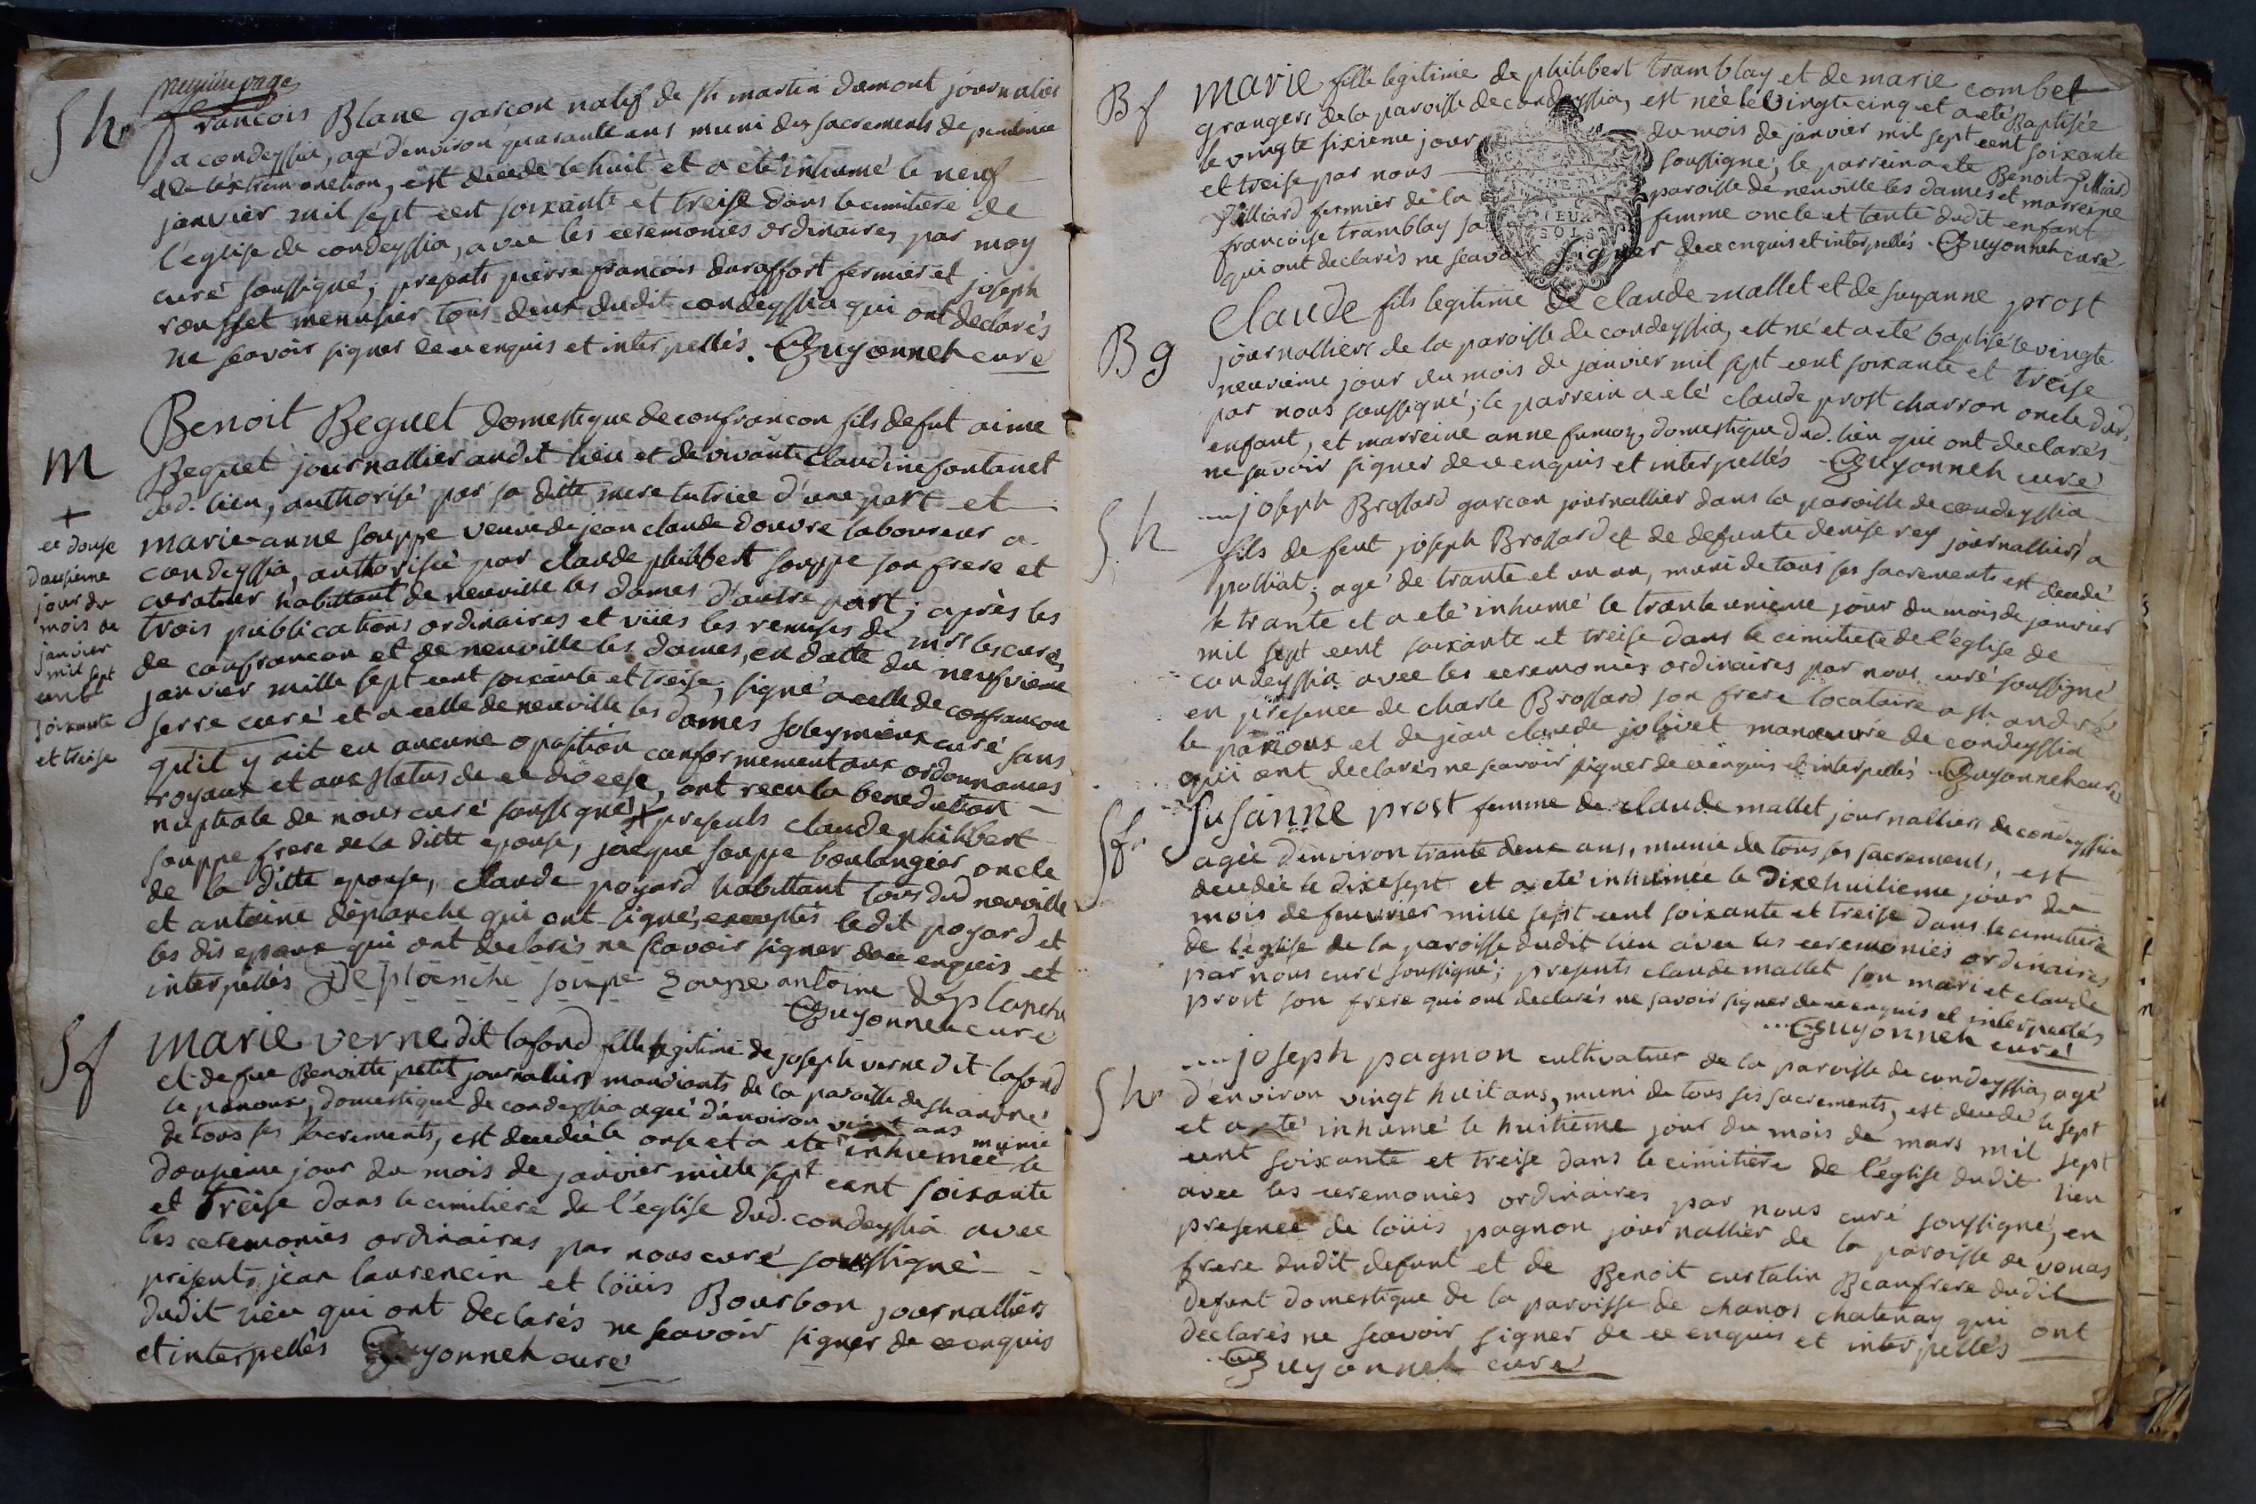 premiere page
Sh
francois Blanc garçon natif de st martin dumont journalier
a condeyssia, agé d'environ quarante ans muni des sacrements de penitence
et de l'extremonction, est décédé le huit et a eté inhumé le neuf
janvier mil sept cent soixante et treise dans le cimitière de
l'eglise de condeyssia, avec les ceremonies ordinaires par moy
curé soussigné; presents pierre francois duraffort fermier et joseph
rousset menusier tous deux dudit condeyssia qui ont declarés
ne scavoir signer de ce enquis et interpellés. Guyonnet curé
M
Benoit Beguet domestique de confrancon fils de fut aimé
Beguet journallier audit lieu et de vivante Claudine fontanet
dud. lieu, authorisé par sa ditte mere tutrice d'une part et
marie-anne souppe veuve de jean claude douvre laboureur a
condeyssia, authorisée par claude philibert souppe son frere et
curateur habittant de neuville les dames d'autre part; après les
trois publications ordinaires et vües les remises de mrs les curés
de confrancon et de neuville les dames, en datte du neufvieme
janvier mille sept cent soixante et treise, signé a celle de confrancon
serre curé et a celle de neuville les dames soleymieux curé sans
qu'il y ait eu aucune oposition conformement aux ordonnances
royaux et aux statuts de ce diocese, ont recu la benediction
nuptiale de nous curé soussigné + presents claude philibert
souppe frere de la ditte epouse, jacque souppe boulanger oncle
de la ditte epouse, claude poyard habittant tous dud neuville
et antoine déplanche qui ont signé, exceptés ledit poyard et
les dis epoux qui ont declarés ne scavoir signer de ce enquis et
interpellés Deplanche soupe Soupe antoine déplanche
Guyonnet curé
+
ce douse
dousieme
jour du
mois de
janvier
mil sept
cent
soixante
et treise
Sf
marie verne dit lafond fille legitime de joseph verne dit lafond
et de fue Benoitte petit journaliers mandiants de la paroisse de st andré
le panoux, domestique de condeyssia agée d'environ vingt ans munie
de tous ses sacrements, est decedée le onse et a eté inhumée le
dousieme jour du mois de janvier mille sept cent soixante
et treise dans le cimitiere de l'église dud. condeyssia avec
les ceremonies ordinaires par nous curé soussigné
présents jean laurencin et loüis Bourbon journalliers
dudit lieu qui ont declarés ne scavoir signer de ce enquis
et interpellés Guyonnet curé
Bf
marie fille legitime de philibert tramblay et de marie combet
grangers de la paroisse de condeyssia, est née le vingt cinq et a eté Baptisée
le vingt sixieme jour du mois de janvier mil sept cent soixante
et treise par nous soussigné, le parrein a eté Benoit Pilliard
Pilliard fermier de la paroisse de neuville les dames et marreine
francoise tramblay sa femme oncle et tante dudit enfant
qui ont declarés ne scavoir signer de ce enquis et interpellés Guyonnet curé
Bg
Claude fils legitime de claude mallet et de suzanne prost
journalliers de la paroisse de condeyssia, est né et a eté baptisé le vingt
neuvieme jour du mois de janvier mil sept cent soixante et treise
par nous soussigné; le parrein a eté claude prost charron oncle dud.
enfant, et marreine anne domestique dud. lieu qui ont declarés
ne scavoir signer de ce enquis et interpellés Guyonnet curé
Sh
joseph Brossard garcon journallier dans la paroisse de condeyssia
fils de feut joseph Brossard et de defunte denise rey journalliers a
polliat; agé de trante et un an, muni de tous ses sacrements est decedé
le trante et a eté inhumé le trante unieme jour du mois de janvier
mil sept cent soixante et treise dans le cimitiere de l'église de
condeyssia avec les ceremonies ordinaires par nous curé soussigné
en présence de charle Brossard son frere locataire a st andré
le panoux et de jean claude jolivet manœuvre de condeyssia
qui ont declarés ne scavoir signer de ce enquis et interpellés Guyonnet curé
Sf
Susanne prost femme de claude mallet journalliers de condeyssia,
agée d'environ trante deux ans, munie de tous ses sacrements, est
decedée le dixesept et a eté inhumée le dixehuitieme jour du
mois de feuvrier mille sept cent soixante et treise dans le cimitiere
de l'église de la paroisse dudit lieu avec les ceremonies ordinaires
par nous curé soussigné; presents claude mallet son mari et claude
prost son frere qui ont declarés ne savoir signer de ce enquis et interpellés
Guyonnet curé
Sh
joseph pagnon cultivateur de la paroisse de condeyssia, agé
d'environ vingt huit ans, muni de tous ses sacrements, est decedé le sept
et a eté inhumé le huitieme jour du mois de mars mil sept
cent soixante et treise dans le cimitiere de l'église dudit lieu
avec les ceremonies ordinaires par nous curé soussigné, en
presence de loüis pagnon journallier de la paroisse de vonas
frere dudit defunt et de Benoit curtalin Beaufrere dudit
defunt domestique de la paroisse de chanos chatenay qui ont
declarés ne scavoir signer de ce enquis et interpellés
Guyonnet curé